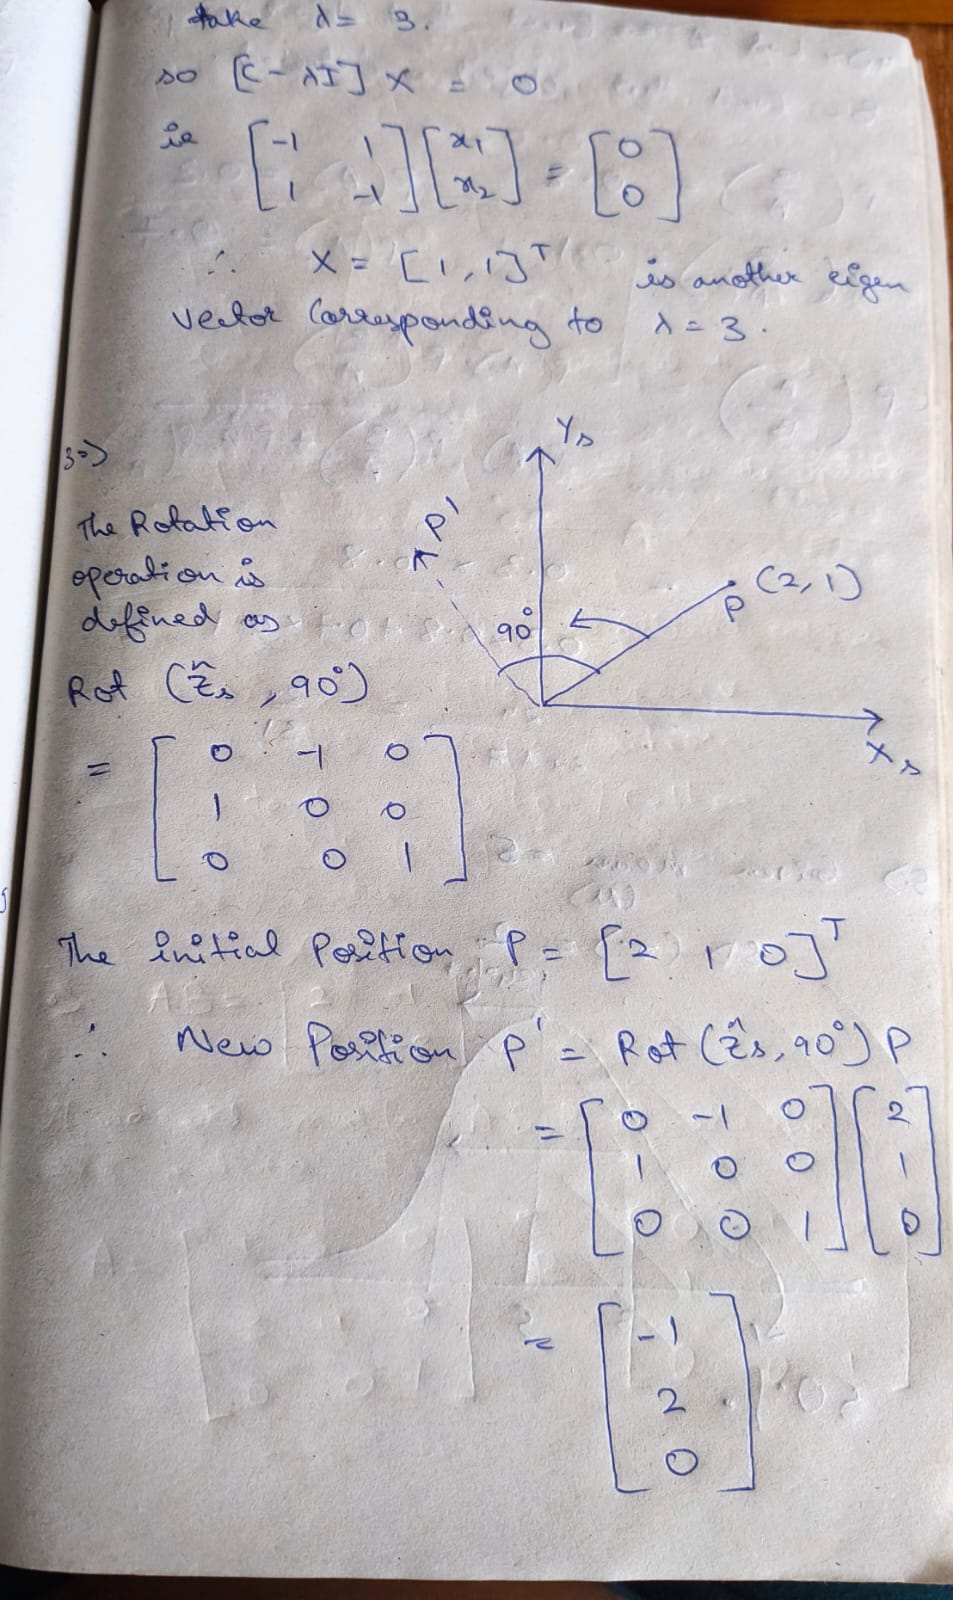 take λ = 3.
so [C - λI] X = 0
ie [-1 1; 1 -1] [x1; x2] = [0; 0]
∴ X = [1, 1]ᵀ is another eigen
vector corresponding to λ = 3.
3=>
The Rotation
operation is
defined as
Rot (ẑs, 90°)
Ys
P'
90°
P (2, 1)
Xs
= [0 -1 0; 1 0 0; 0 0 1]
The initial Position P = [2 1 0]ᵀ
∴ New Position P' = Rot (ẑs, 90°) P
= [0 -1 0; 1 0 0; 0 0 1] [2; 1; 0]
= [-1; 2; 0]